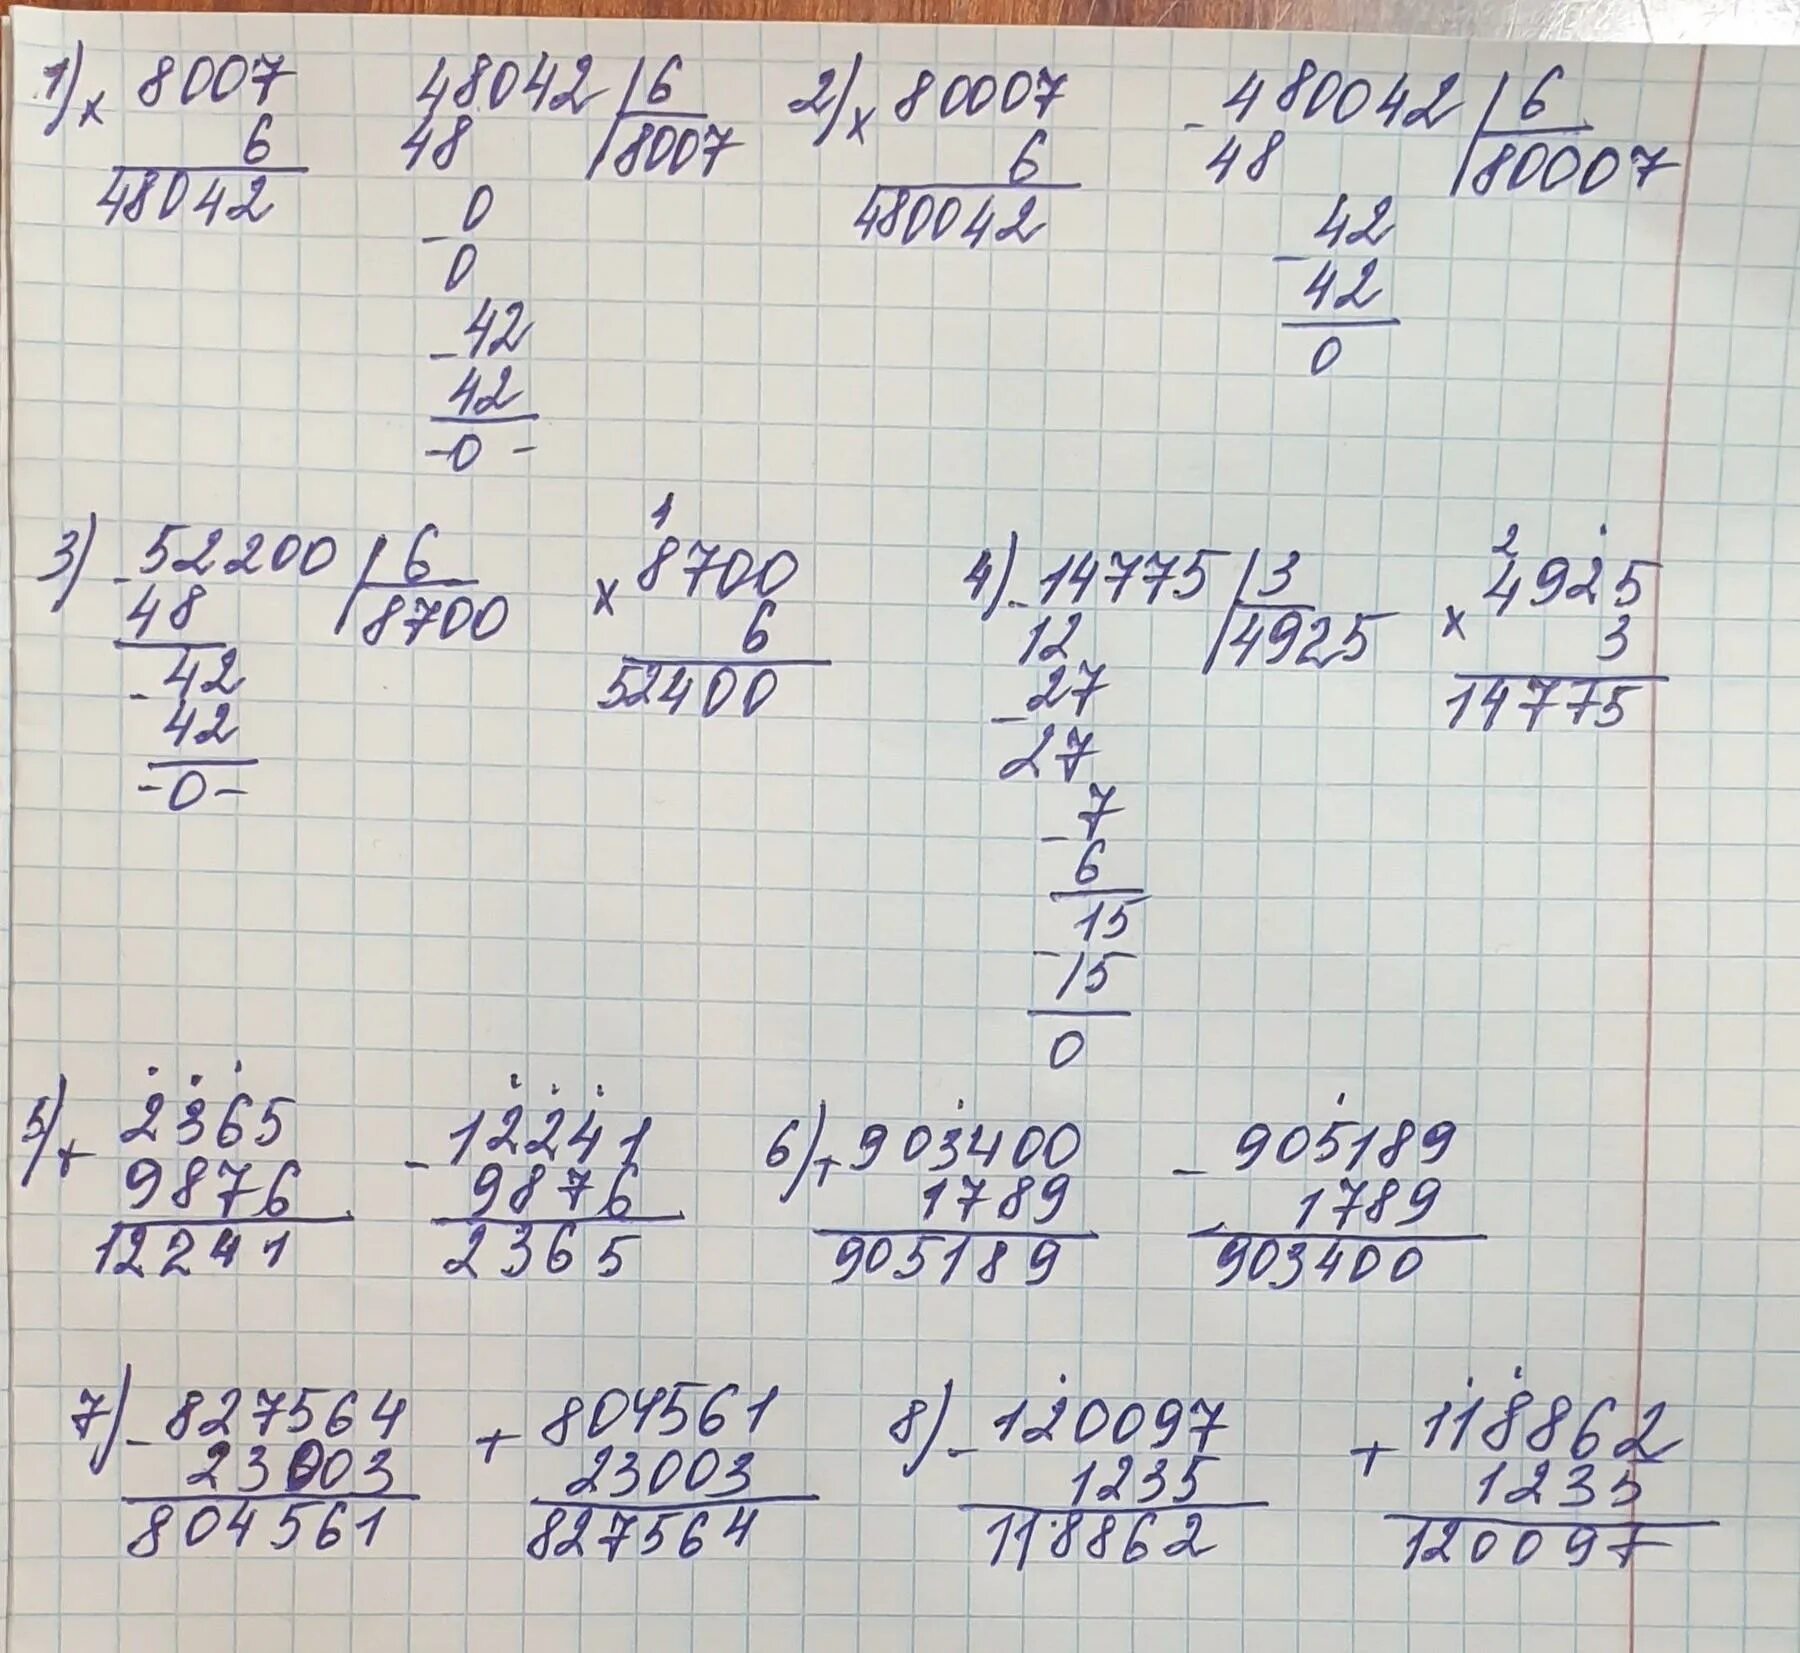 1) × 8007   48042 | 6   2) × 80007   - 480042 | 6
6   48   8007   6   48   80007
48042   - 0   480042   - 42
0   42
- 42   0
42
- 0 -
1   2
3) - 52200 | 6   × 8700   4) - 14775 | 3   × 4925
48   8700   6   12   4925   3
- 42   52400   - 27   14775
42   27
- 0 -   - 7
6
15
- 15
0
5) + 2365   - 12241   6) + 903400   - 905189
9876   9876   1789   1789
12241   2365   905189   903400
7) - 827564   + 804561   8) - 120097   + 118862
23003   23003   1235   1235
804561   827564   118862   120097